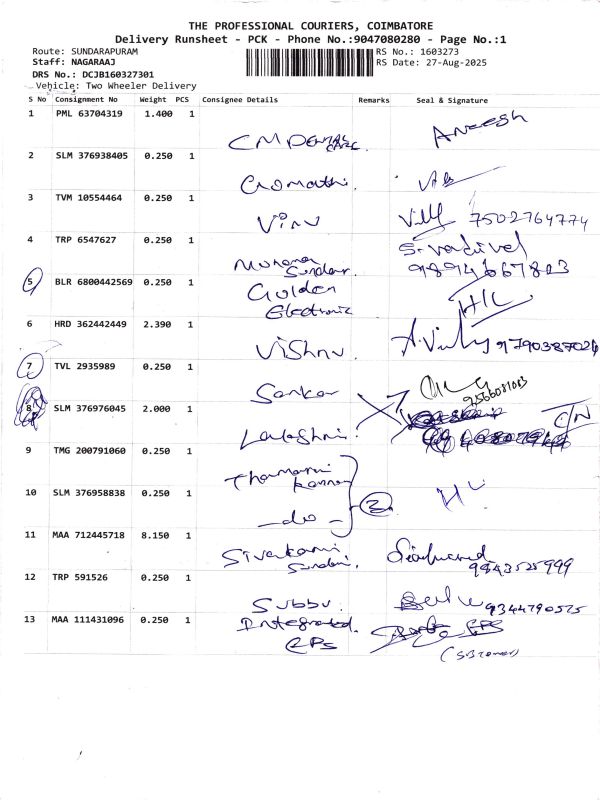 THE PROFESSIONAL COURIERS, COIMBATORE
Delivery Runsheet - PCK - Phone No.:9047080280 - Page No.:1
Route: SUNDARAPURAM
RS No.: 1603273
Staff: NAGARAAJ
RS Date: 27-Aug-2025
DRS No.: DCJB160327301
Vehicle: Two Wheeler Delivery
S No Consignment No Weight PCS Consignee Details Remarks Seal & Signature
1 PML 63704319 1.400 1
CM DENTAL CARE. Aneesh
2 SLM 376938405 0.250 1
Gomathi.
3 TVM 10554464 0.250 1
Vinu 7502764774
4 TRP 6547627 0.250 1
S. Vadivel
Sundar 9894667803
5 BLR 6800442569 0.250 1
Golden
Electronic
6 HRD 362442449 2.390 1
Vishnu 9790387026
7 TVL 2935989 0.250 1
Sankar
8 SLM 376976045 2.000 1
9 TMG 200791060 0.250 1
Kannan
2
10 SLM 376958838 0.250 1
- do -
11 MAA 712445718 8.150 1
Sivakami
Sundari. 9843525999
12 TRP 591526 0.250 1
Subbu. 9344790525
13 MAA 111431096 0.250 1
Integrated
EPS